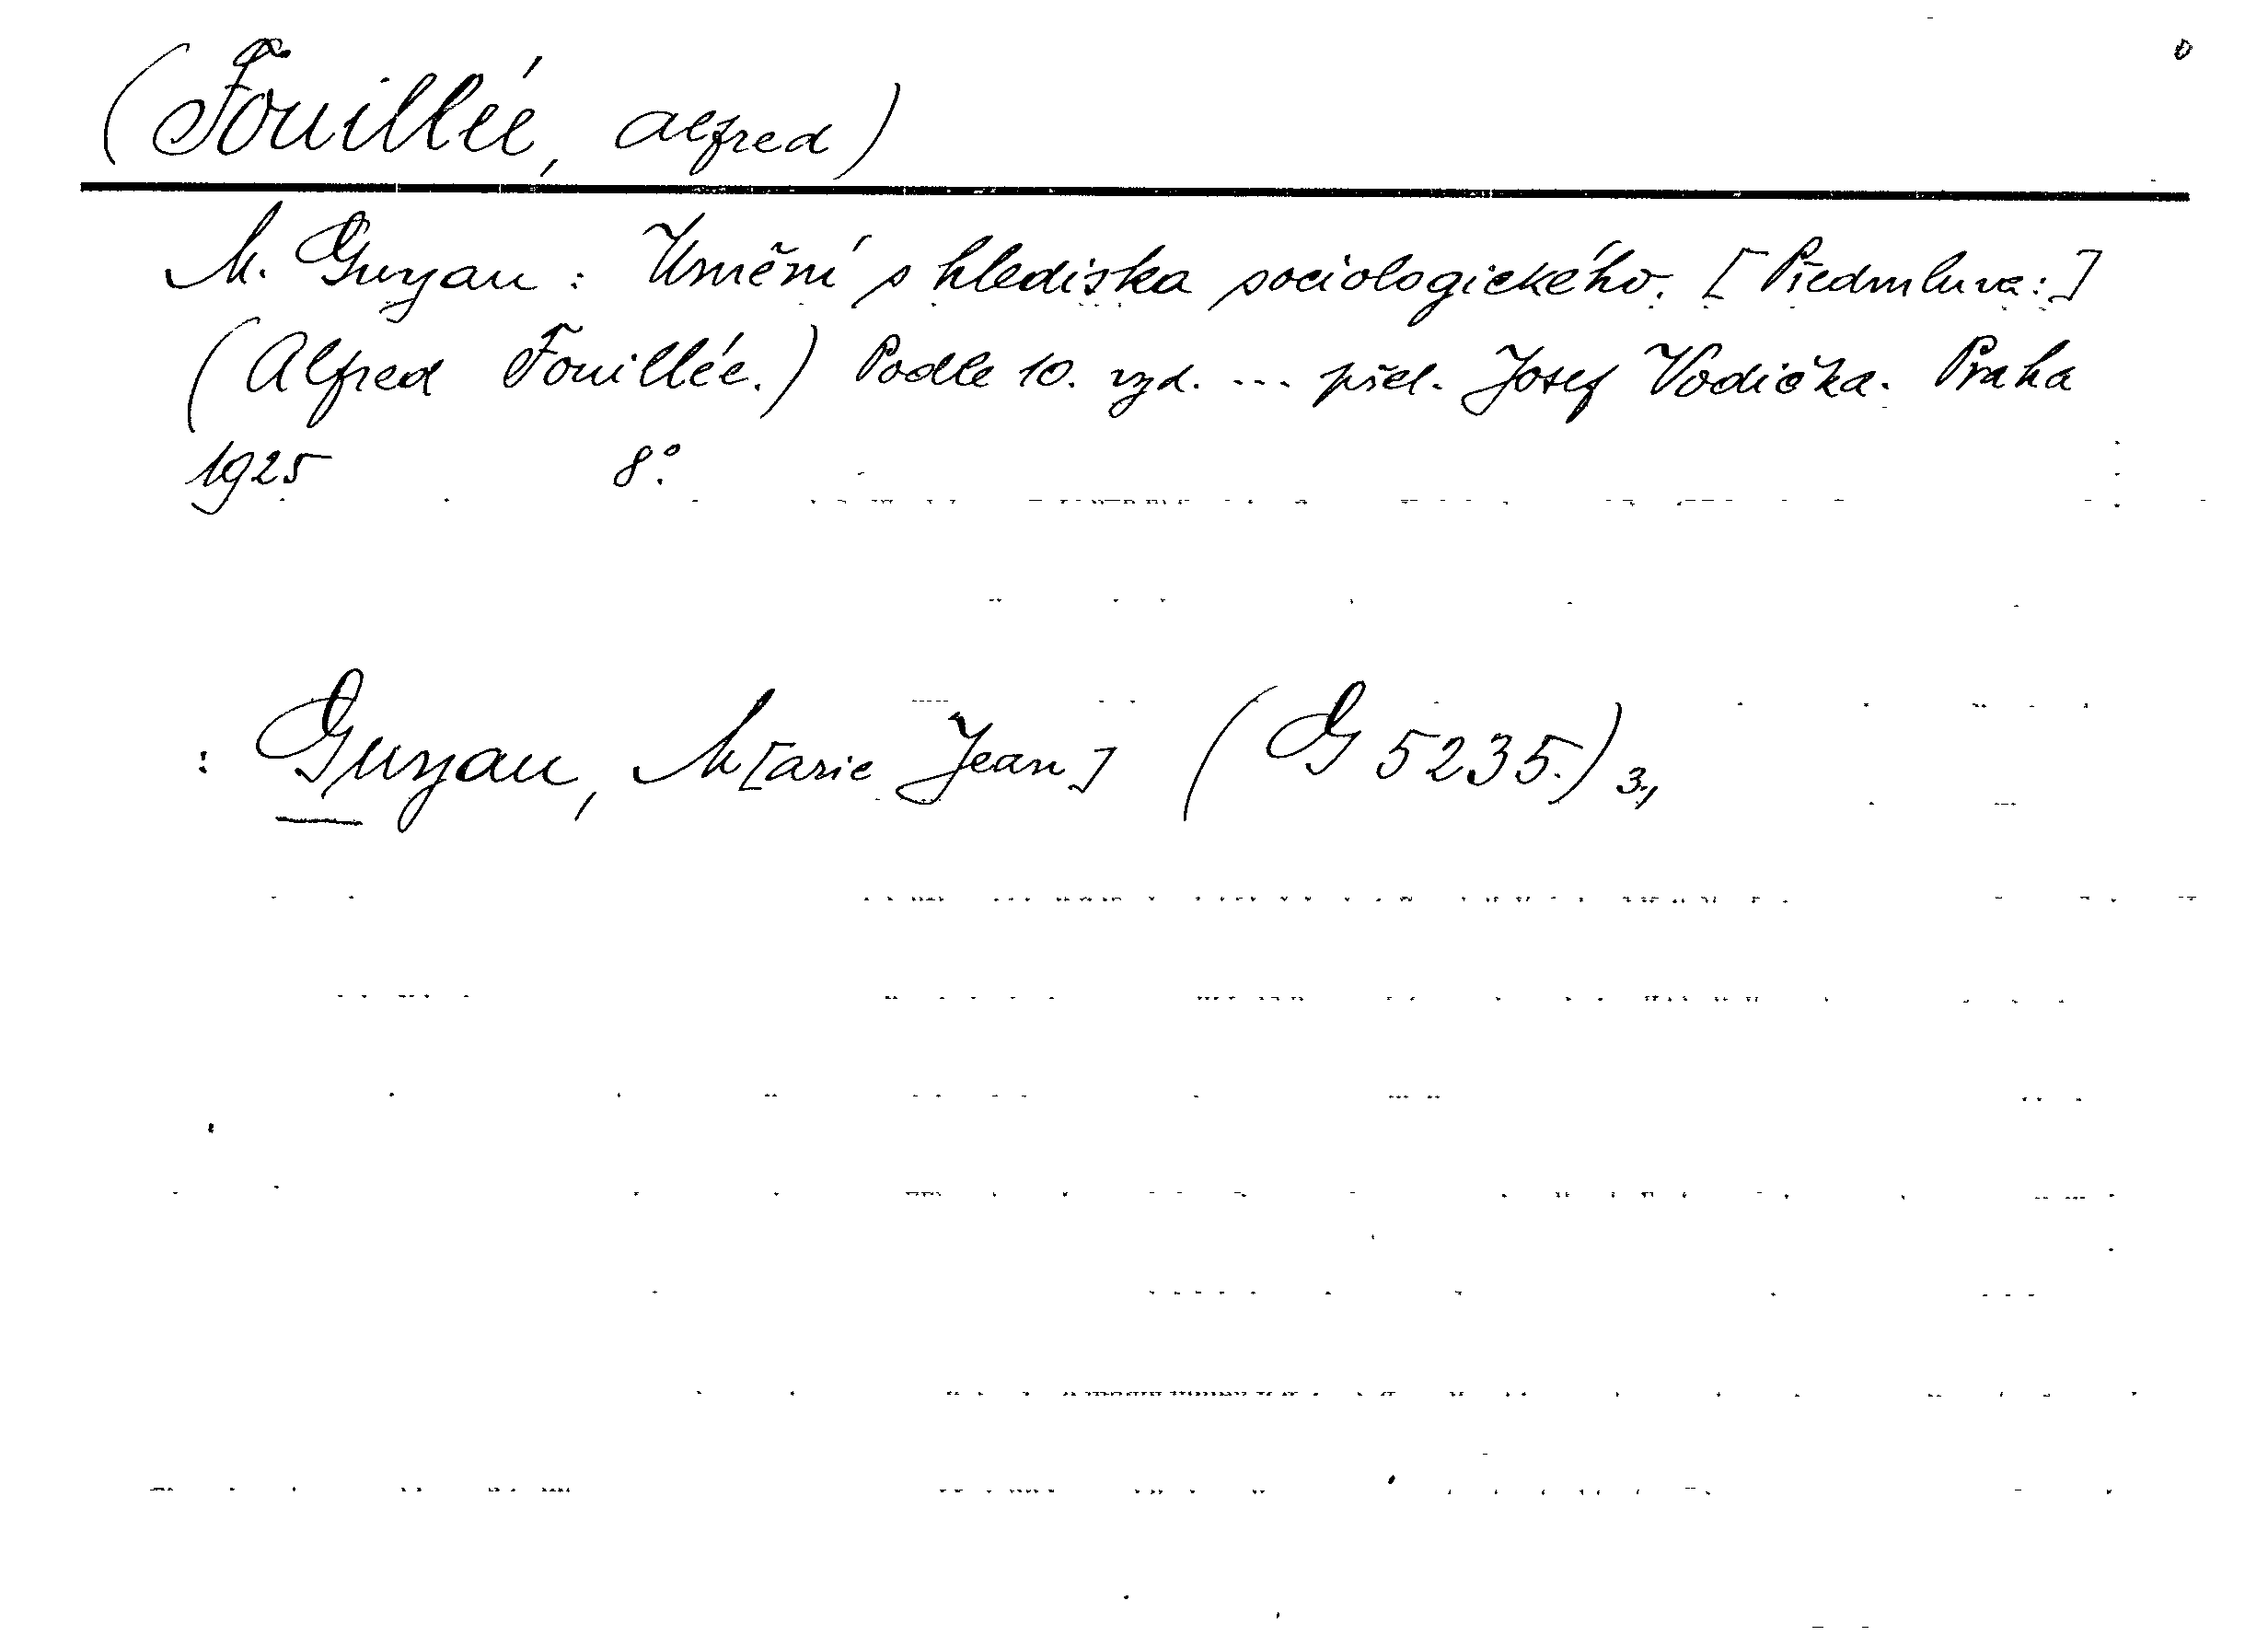 (Fouillée, Alfred)
M. Guyau: Umění s hlediska sociologického. [Předmluva:]
(Alfred Fouillée.) Podle 10. vyd. ... přel. Josef Vodička. Praha
1925 8°.
: Guyau, M[arie Jean] (G 5235.) 3.,